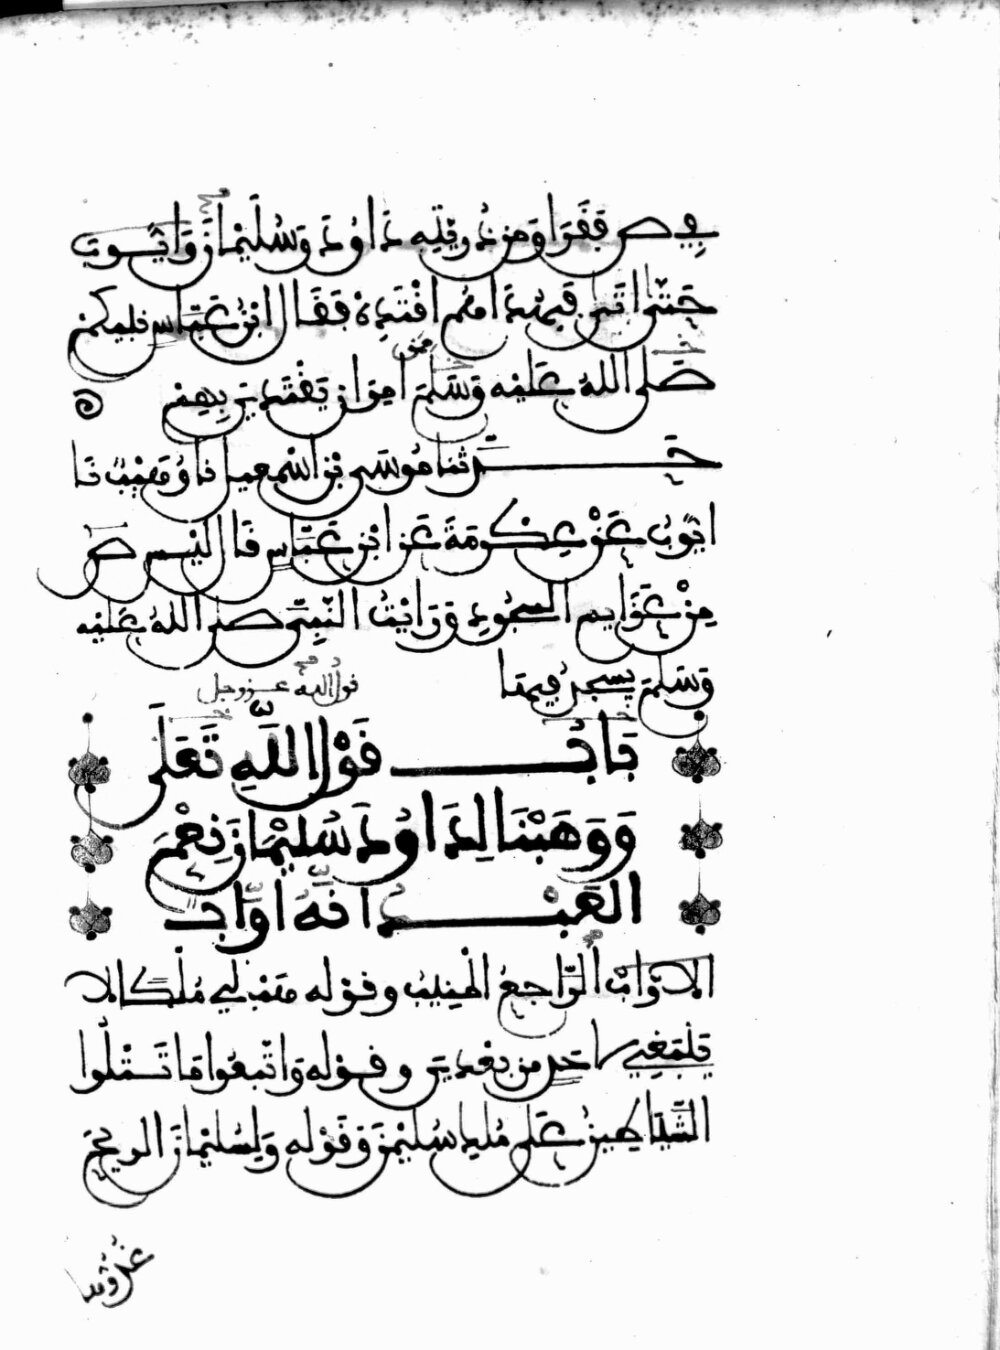 في ص فقرا ومن ذريته داوود وسليمان وايوب
حتى اتى فبهداهم اقتده فقال ابن عباس نبيكم
صلى الله عليه وسلم ممن امر ان يقتدي بهم
حدثنا موسى بن اسمعيل نا وهيب نا
ايوب عن عكرمة عن ابن عباس قال ليس ص
من عزايم السجود ورايت النبي صلى الله عليه
وسلم يسجد فيها
قول الله عز وجل
باب قول الله تعلى
ووهبنا لداوود سليمان نعم
العبد انه اواب
الاواب الراجع المنيب وقوله هب لي ملكا لا
ينبغي لاحد من بعدي وقوله واتبعوا ما تتلوا
الشياطين على ملك سليمن وقوله ولسليمان الريح
غدوها